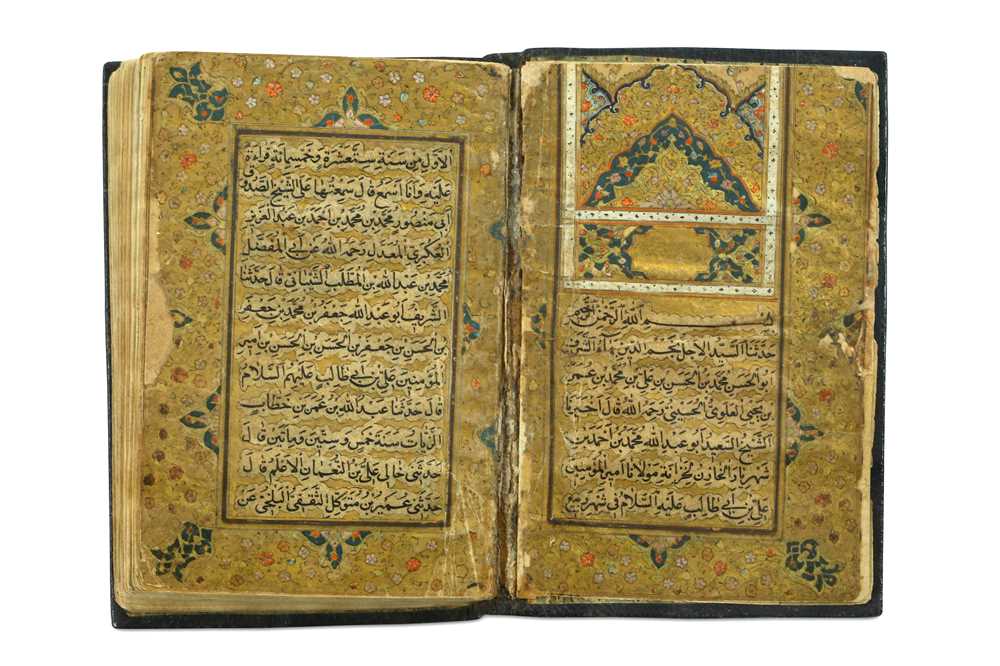 بسم الله الرحمن الرحيم
حدثنا السيد الاجل نجم الدين بهاء الشرف
ابو الحسن محمد بن الحسن بن علي بن محمد بن عمر
بن يحيى العلوي الحسيني رحمه الله قال اخبرنا
الشيخ السعيد ابو عبد الله محمد بن احمد بن
شهريار الخازن لخزانة مولانا امير المؤمنين
علي بن ابي طالب عليه السلام في شهر ربيع
الاول من سنة ست عشرة وخمسمائة قراءة
عليه وانا اسمع قال سمعتها على الشيخ الصدوق
ابي منصور محمد بن محمد بن احمد بن عبد العزيز
العكبري المعدل رحمه الله عن ابي المفضل
محمد بن عبد الله بن المطلب الشيباني قال حدثنا
الشريف ابو عبد الله جعفر بن محمد بن جعفر
بن الحسن بن جعفر بن الحسن بن الحسن بن امير
المؤمنين علي بن ابي طالب عليهم السلام
قال حدثنا عبد الله بن عمر بن خطاب
الزيات سنة خمس وستين وماتين قال
حدثني خالي علي بن النعمان الاعلم قال
حدثني عمير بن متوكل الثقفي البلخي عن